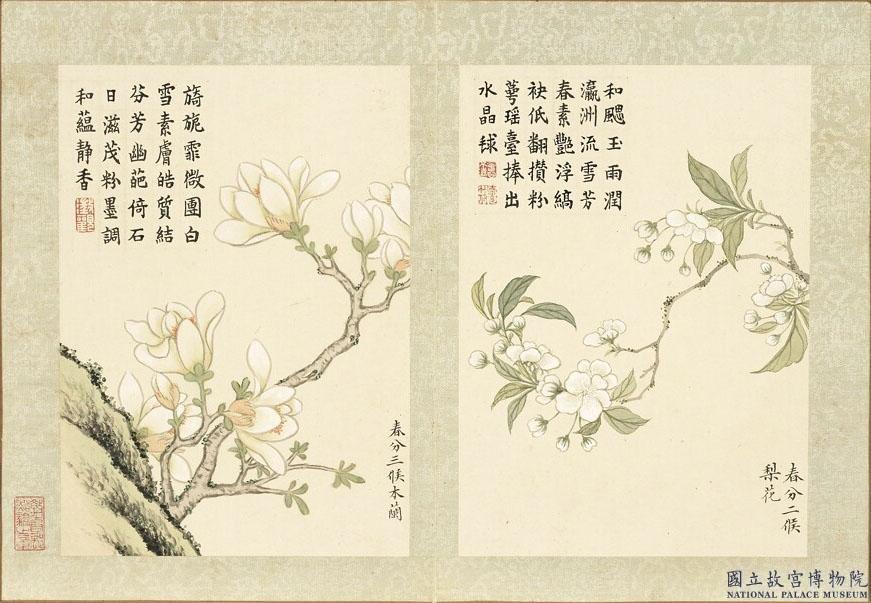 和颸玉雨潤
瀛洲流雪芳
春素豔浮縞
袂低翻攢粉
萼瑶臺捧出
水晶毬
春分二候
梨花
旖旎霏微團白
雪素膚皓質結
芬芳幽葩倚石
日滋茂粉墨調
和蘊静香
春分三候木蘭
國立故宮博物院
NATIONAL PALACE MUSEUM